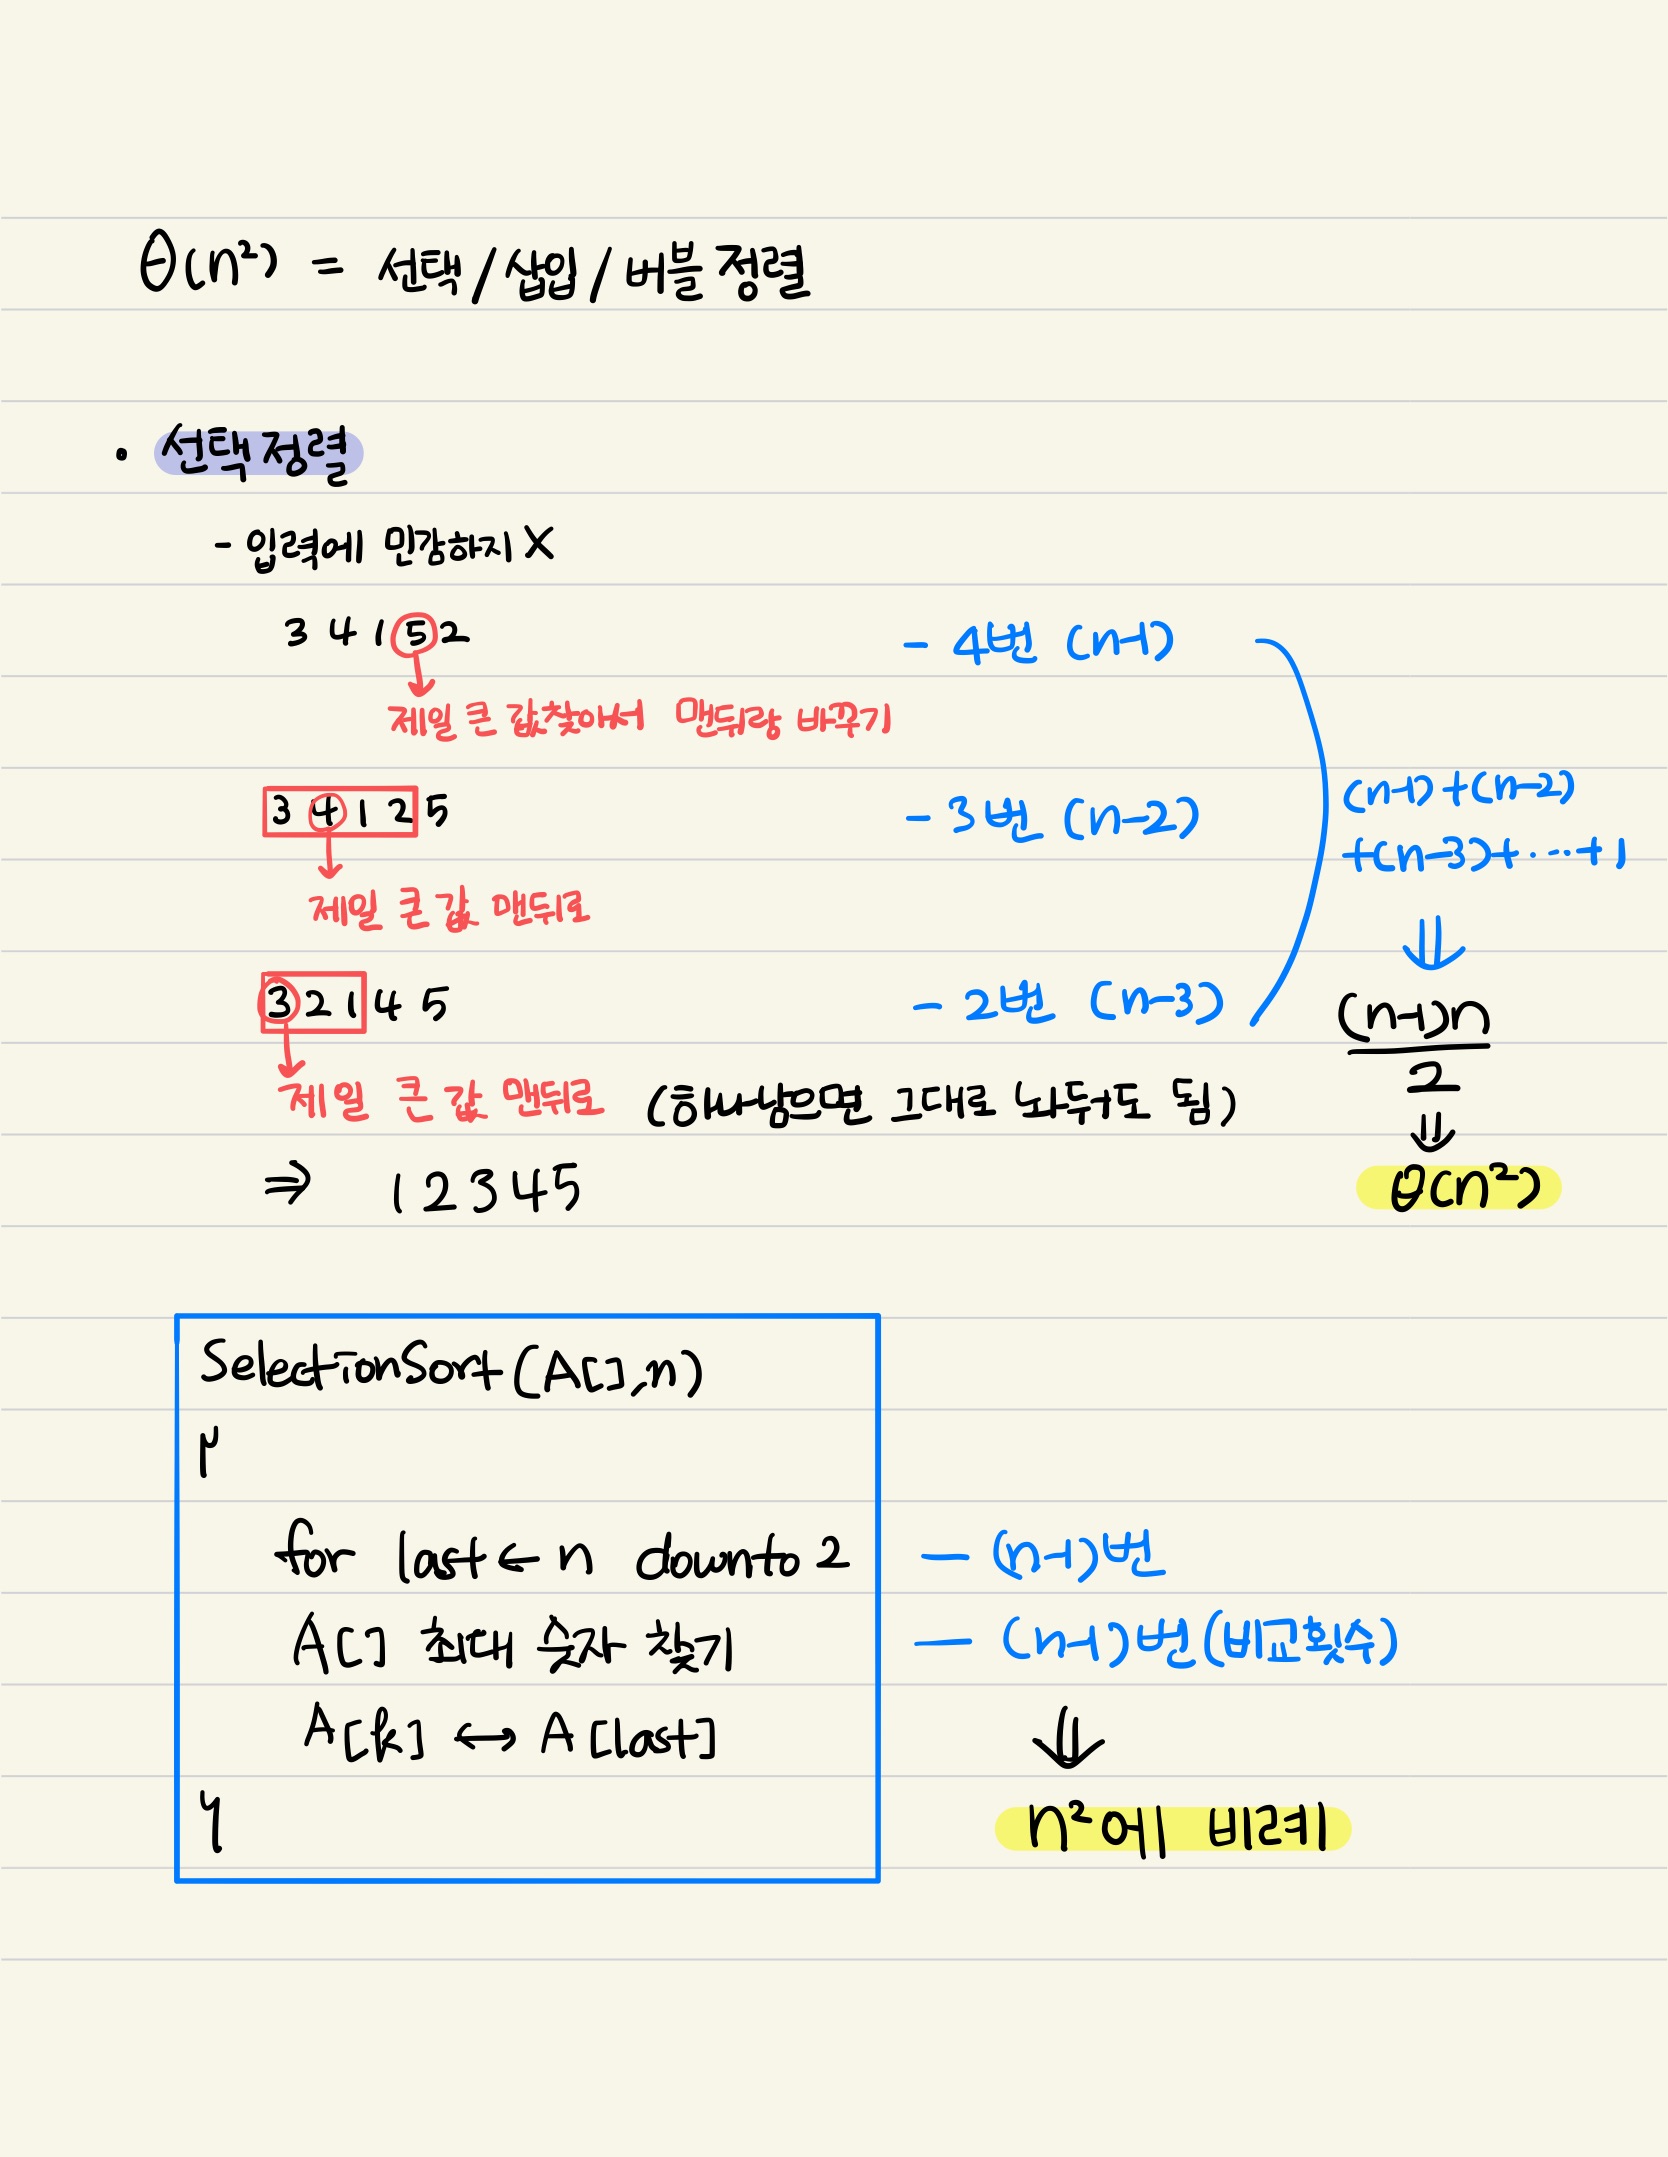 θ(n²) = 선택/삽입/버블 정렬
• 선택정렬
- 입력에 민감하지 X
3 4 1 5 2
- 4번 (n-1)
제일 큰 값찾아서 맨뒤랑 바꾸기
3 4 1 2 5
- 3번 (n-2)
(n-1)+(n-2)
+(n-3)+····+1
제일 큰 값 맨뒤로
⇓
3 2 1 4 5
- 2번 (n-3)
(n-1)n
2
제일 큰 값 맨뒤로 (하나남으면 그대로 놔둬도 됨)
⇓
⇒ 1 2 3 4 5
θ(n²)
SelectionSort(A[],n)
{
for last ← n downto 2 - (n-1)번
A[] 최대 숫자 찾기 - (n-1)번(비교횟수)
A[k] ↔ A[last]
⇓
}
n²에 비례